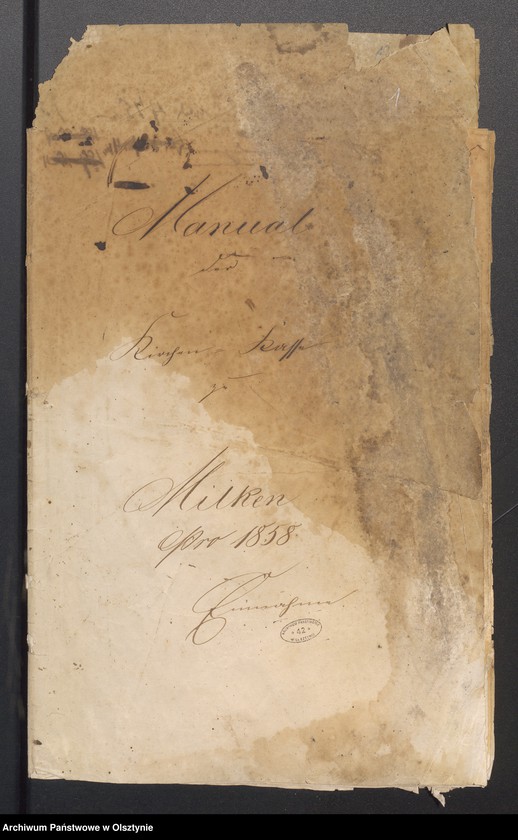 Manual
der
Kirchen-Kasse
zu
Milken
pro 1858
Einnahme.
42
Archiwum Państwowe w Olsztynie